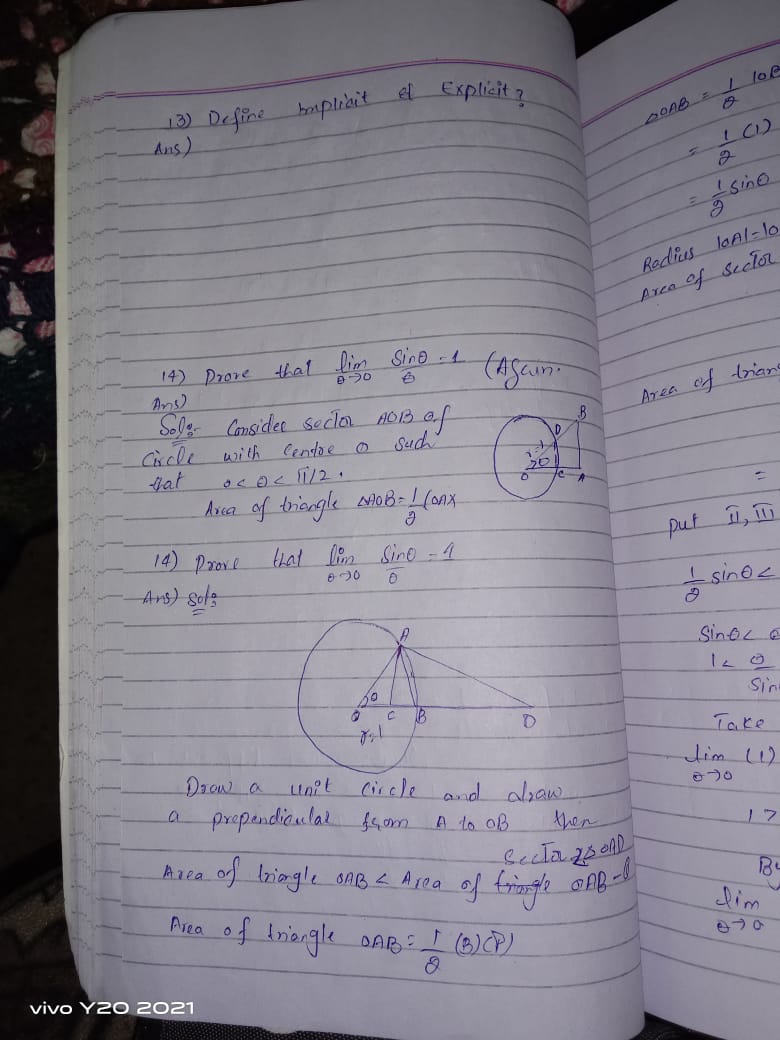 13) Define Implicit & Explicit?
Ans)
14) Prove that lim θ→0 Sinθ/θ = 1 (Again.
Ans)
Sol:- Consider sector AOB of
Circle with Centre O such
that 0<θ<π/2.
Area of triangle ΔAOB = 1/2 (OA×
B
D
r=1
θ
O
C
A
14) Prove that lim θ→0 Sinθ/θ = 1
Ans) Sol:
A
θ
O
C
B
D
r=1
Draw a unit circle and draw
a prependicular from A to OB then
Area of triangle OAB < Area of Sector OAB <
ΔOAD
Area of triangle OAB = 1/2 (B)(P)
ΔOAB = 1/2 |OB
= 1/2 (1)
= 1/2 sinθ
Radius |OA|=|O
Area of sector
Area of trian
=
Put II, III
1/2 sinθ <
Sinθ < θ
1 < θ/Sin
Take
lim θ→0 (1)
1 >
By
lim θ→0
vivo Y20 2021